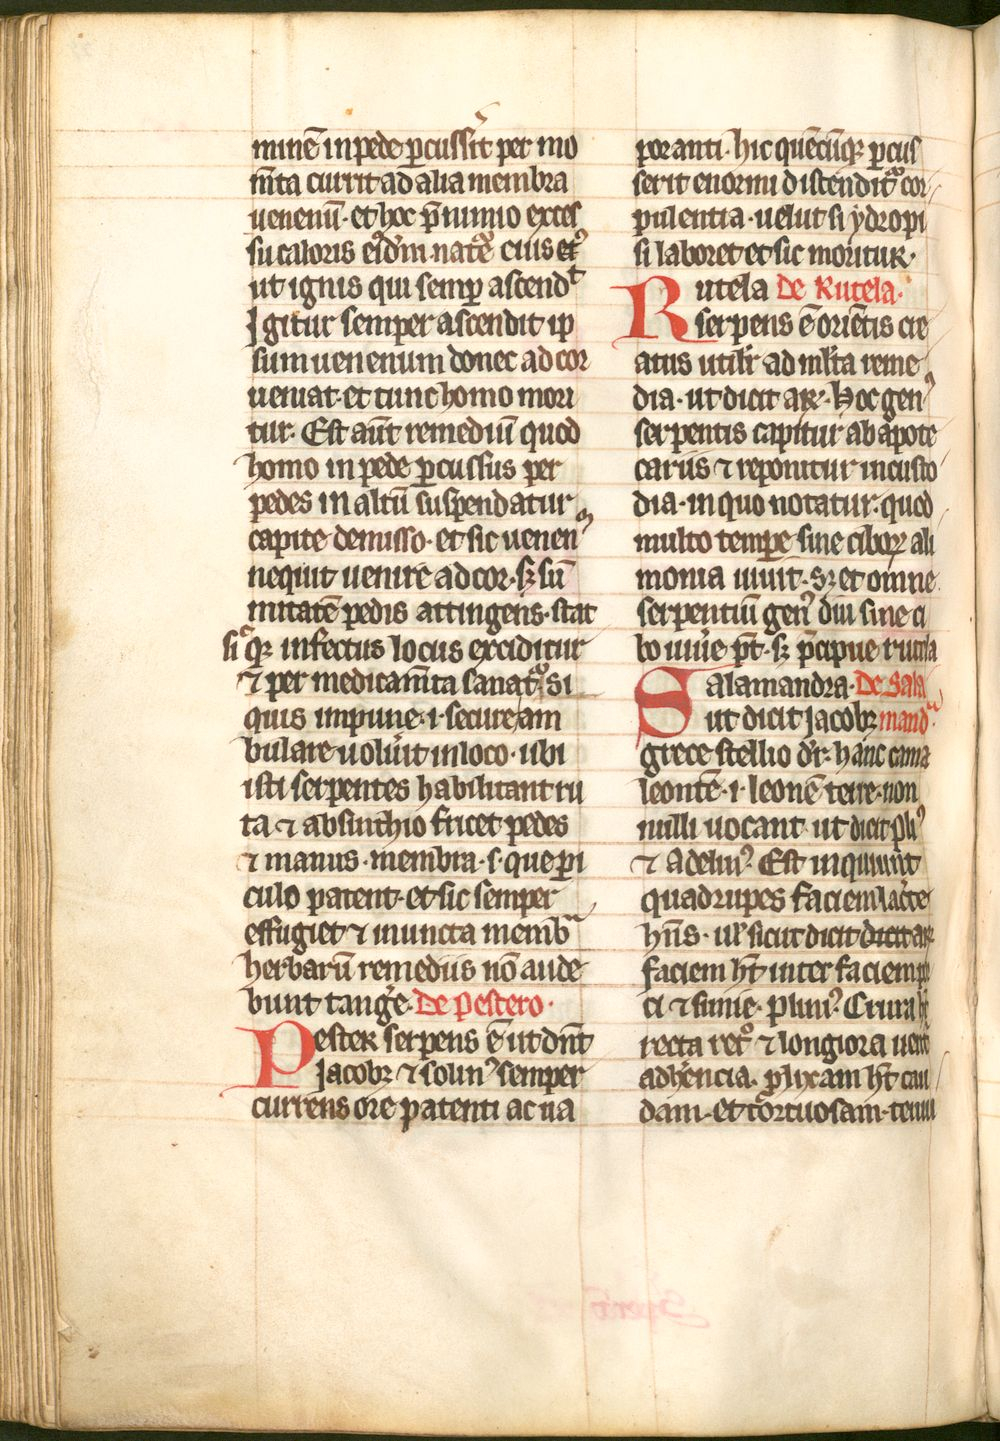 minē in pede ꝑcussīt per mo
m̄ta currit ad alia membra
uenenū· et hoc p̄ nimio exces
su caloris eīdm̄ natᵉ cuis etꝰ
ut ignis qui semꝑ ascendᵗ
Igitur semper ascendit ip
sum uenenum donec ad cor
ueniat· et tunc homo mori
tur· Est aūt remediū quod
homo in pede ꝑcussus per
pedes in altū suspendatur
capite demisso· et sic uenenᵐ
nequit uenire ad cor· sꝫ sū
mitatē pedis attingens· stat
siqꝫ infectus locus exciditur
⁊ per medicam̄ta sanat᷑ Si
quis impune· i· secure am
bulare uolu̓it in loco· ubi
isti serpentes habilitant ru
ta ⁊ absinthio fricet pedes
⁊ manus· membra· s· que ꝑi
culo patent· et sic semper
effugiet ⁊ inuncta membᵃ
herbarū remediis nō aude
bunt tang̓e· De pestero·
Pester serpens ē ut dn̄t
Jacobꝫ ⁊ solinꝰ semper
currens ore patenti ac ua
poranti· hic quēcūqꝫ ꝑcus
serit enormi distendit᷑ cor
pulentia· uelut si ydropi
si laboret et sic moritur·
Rutela De Rutela·
serpens ē orīetis cre
atus utilr̄ ad ml̄ta reme
dia· ut dicit ar̄· Hoc genꝰ
serpentis capitur ab apote
cariis ⁊ reponitur in custo
dia· in quo notatur· quod
multo tempe sine ciboꝝ ali
monia uiuit· sꝫ et omne
serpentiū genꝰ diu sine ci
bo uiu̓e pt̄· sꝫ p̄cipue rutela
Salamandra· De Sala
ut dicit Jacobꝫ mandᵃ
grece stellio dr̄· hanc cama
leontē· i· leonē terre· non
nulli uocant ut dicit pliꝰ
⁊ Adelinꝰ· Est inquiunt
quadrupes faciem lac̓te
hn̄s· ul̄ sicut dicit dicit ar
faciem ht̄ inter faciem
ci ⁊ simie· Pliniꝰ· Crura
recta retᵒ ⁊ longiora uent
adh̓encia· ꝓlixam ht̄ cau
dam· et tortuosam· tenui